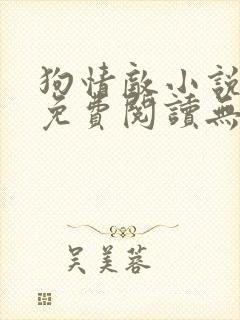 狗情敵小說
免費閱讀無
吴美蓉